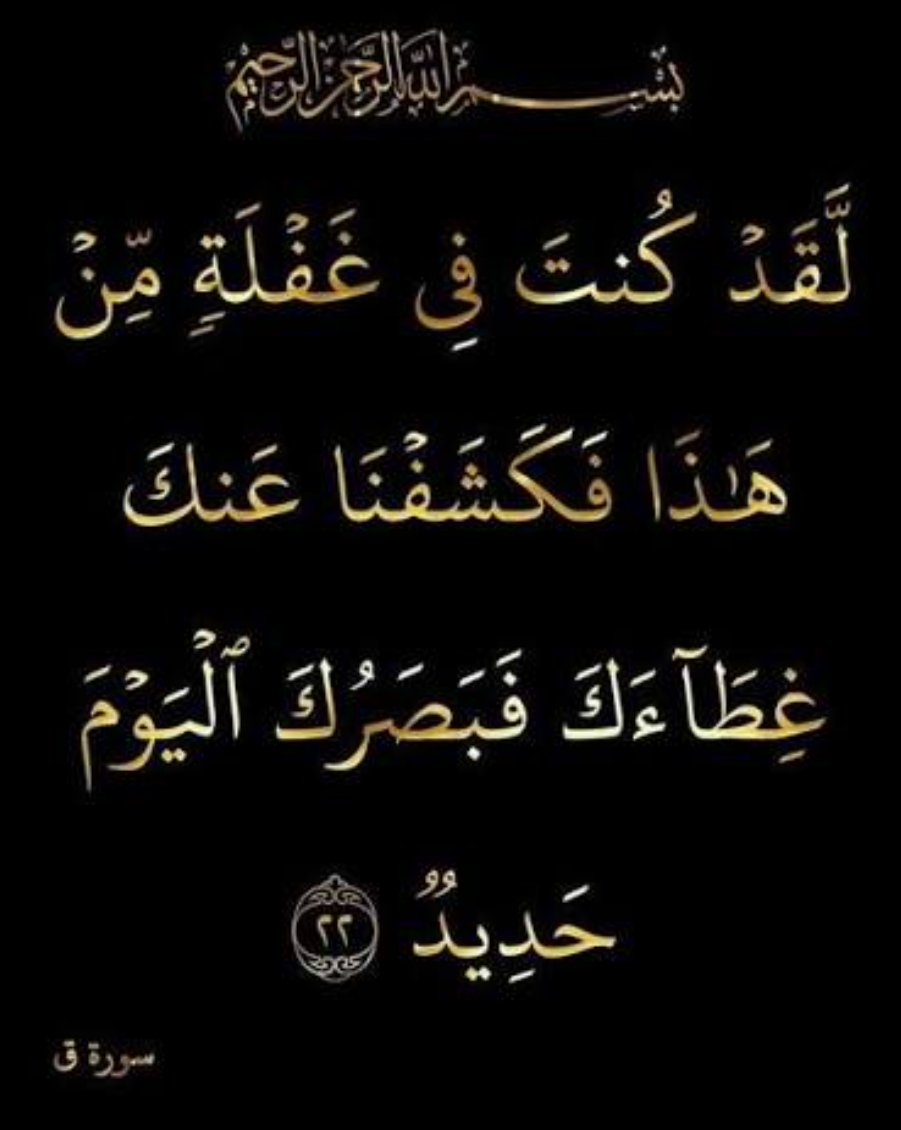 بسم الله الرحمن الرحيم
لَّقَدْ كُنتَ فِي غَفْلَةٍ مِّنْ
هَٰذَا فَكَشَفْنَا عَنكَ
غِطَآءَكَ فَبَصَرُكَ ٱلْيَوْمَ
حَدِيدٌ ٢٢
سورة ق